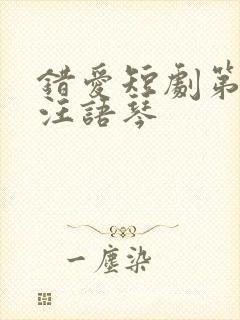 錯愛短劇第
汪語琴
一塵染